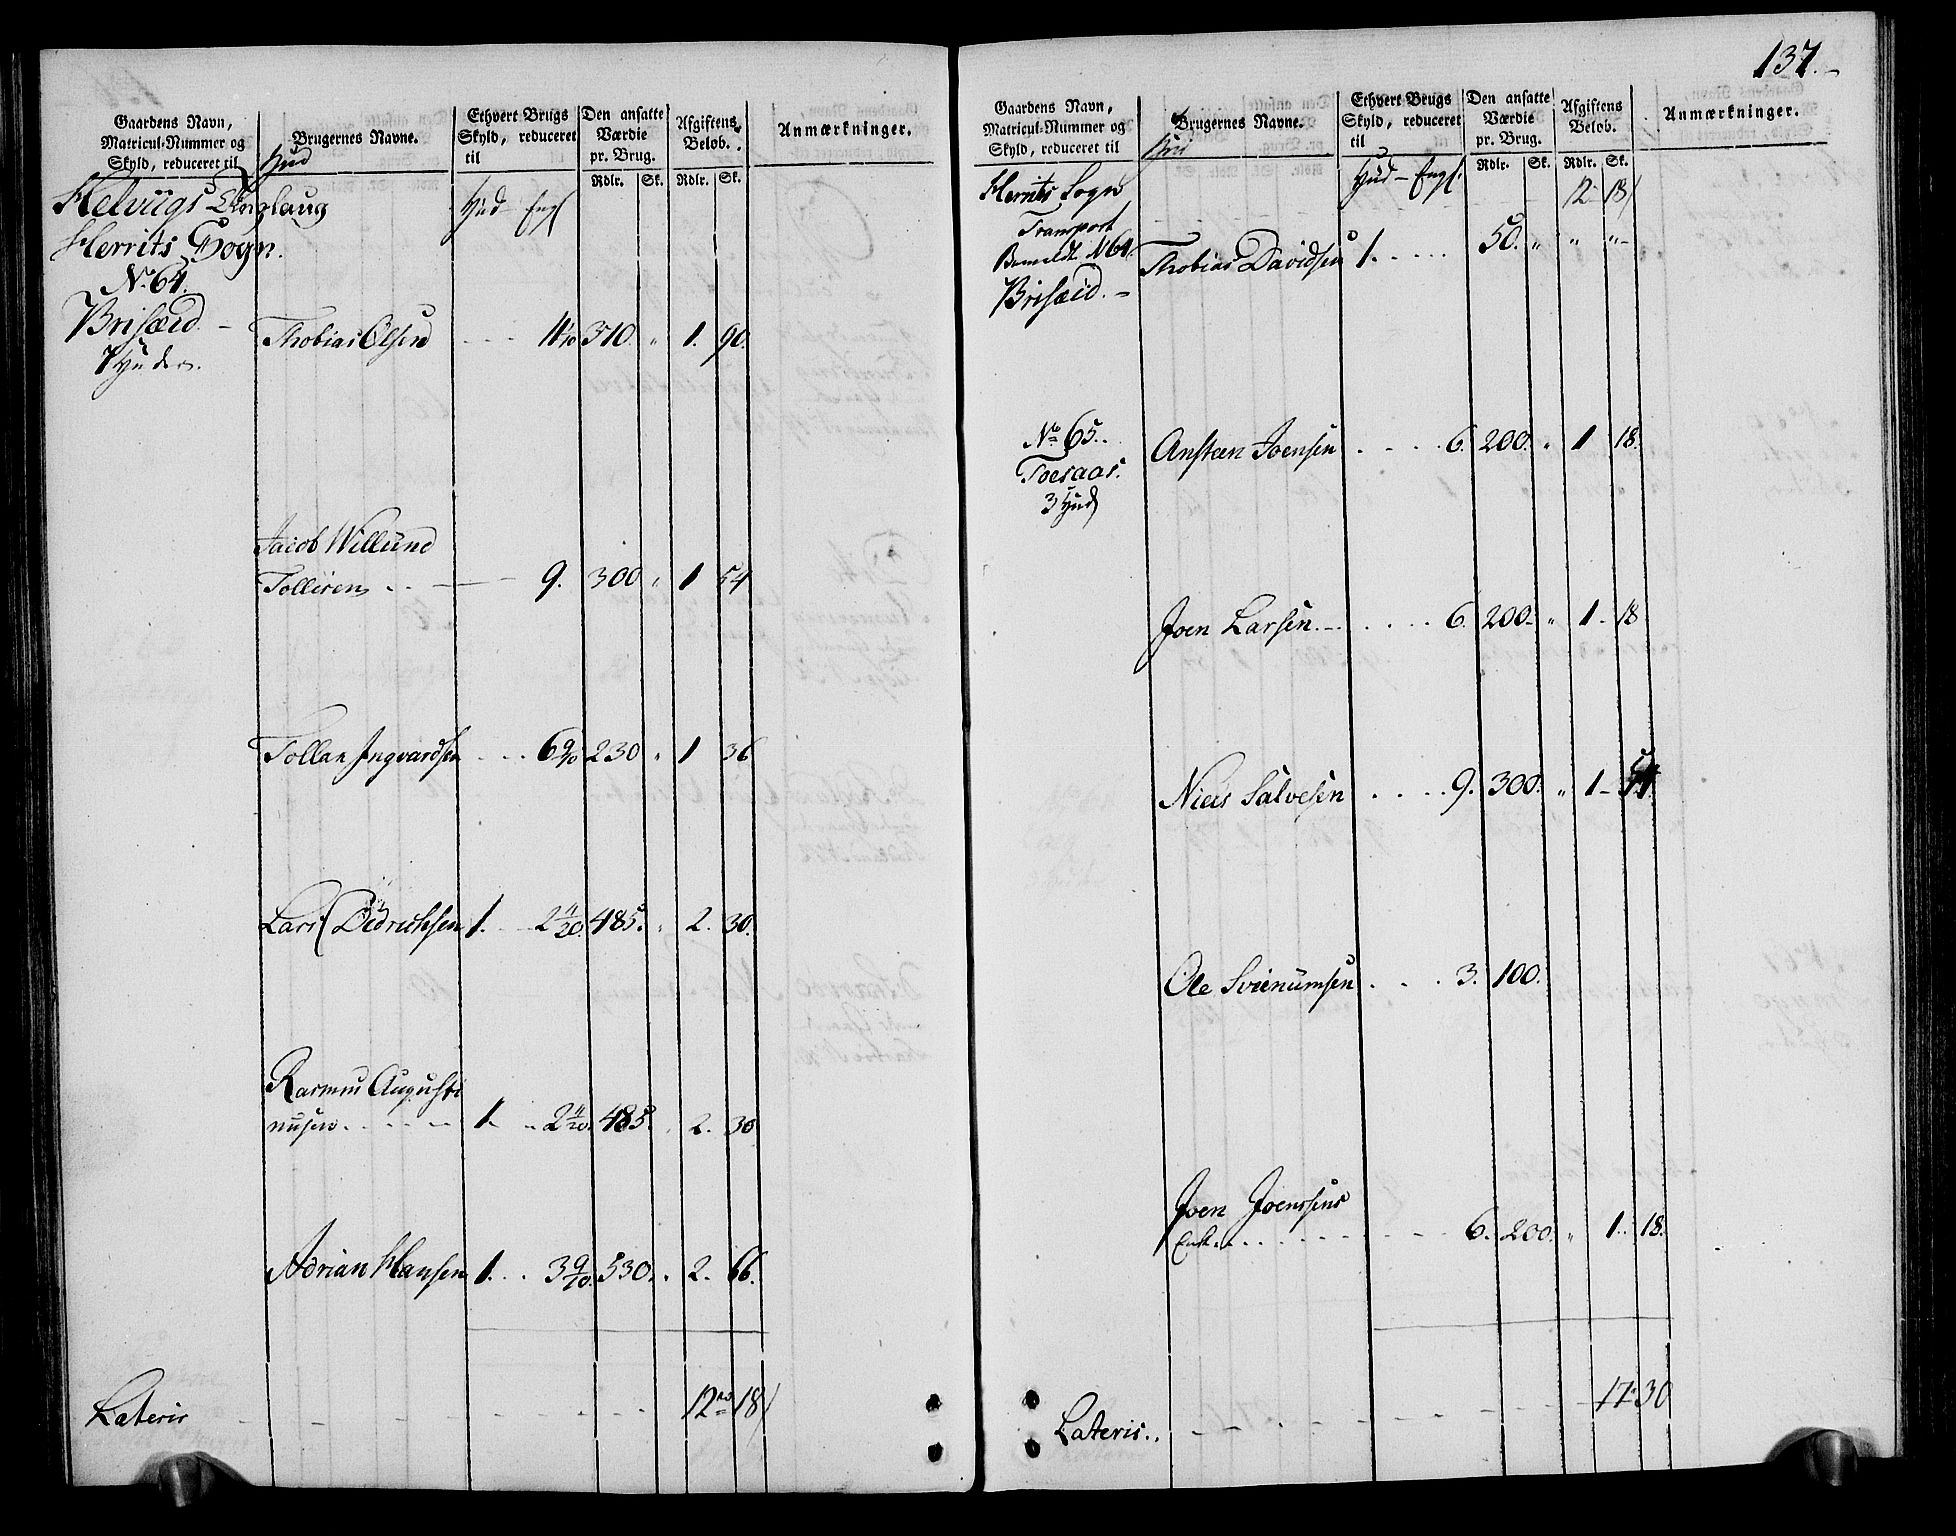 Gaardens Navn,
Matricul-Nummer og
Skyld, reduceret til
Hud
Brugernes Navne.
Ethvert Brugs
Skyld, reduceret
til
Den ansatte
Værdie
pr. Brug.
Rdlr. Sk.
Afgiftens
Belob.
Rdlr. Sk.
Anmærkninger.
Helviigs
Hud - Eng
Herrits Sogn.
No 64.
Brisæid. - Thobias Olsen 310 " 1. 90.
7 Huder.
Jacob Willund
Tollisen 9. 300 " 1 54
Tollak Ingvardsen 6 9/10 230 " 1 36
Lars Didrichsen 1. 2 11/20. 485. " 2. 30.
Rasmus Augusti
nusen 1. 2 11/20. 485. 2. 30
Adrian Hansen 1. 3 9/10. 530. " 2. 66.
Lateris 12 rd 18 /
137.-
Gaardens Navn,
Matricul-Nummer og
Skyld, reduceret til
Brugernes Navne.
Ethvert Brugs
Skyld, reduceret
til
Den ansatte
Værdie
pr. Brug.
Rdlr. Sk.
Afgiftens
Belob.
Rdlr. Sk.
Anmærkninger.
Herrits Sogn Hud - Eng. 12 - 18 /
Transport
Bemeldte No 64. Thobias Davidsen 1. 50. " " "
Brisæid. -
No 65. Ansteen Joensen 6. 200. " 1 18.
Toesaas.
3 Hud
Joen Larsen 6. 200. " 1 - 18
Niels Salvesen 9. 300. " 1 - 54.
Ole Sveinumsen 3. 100.
Joen Joenssens
Enke 6. 200. " 1. 18.
Lateris. 17 - 30